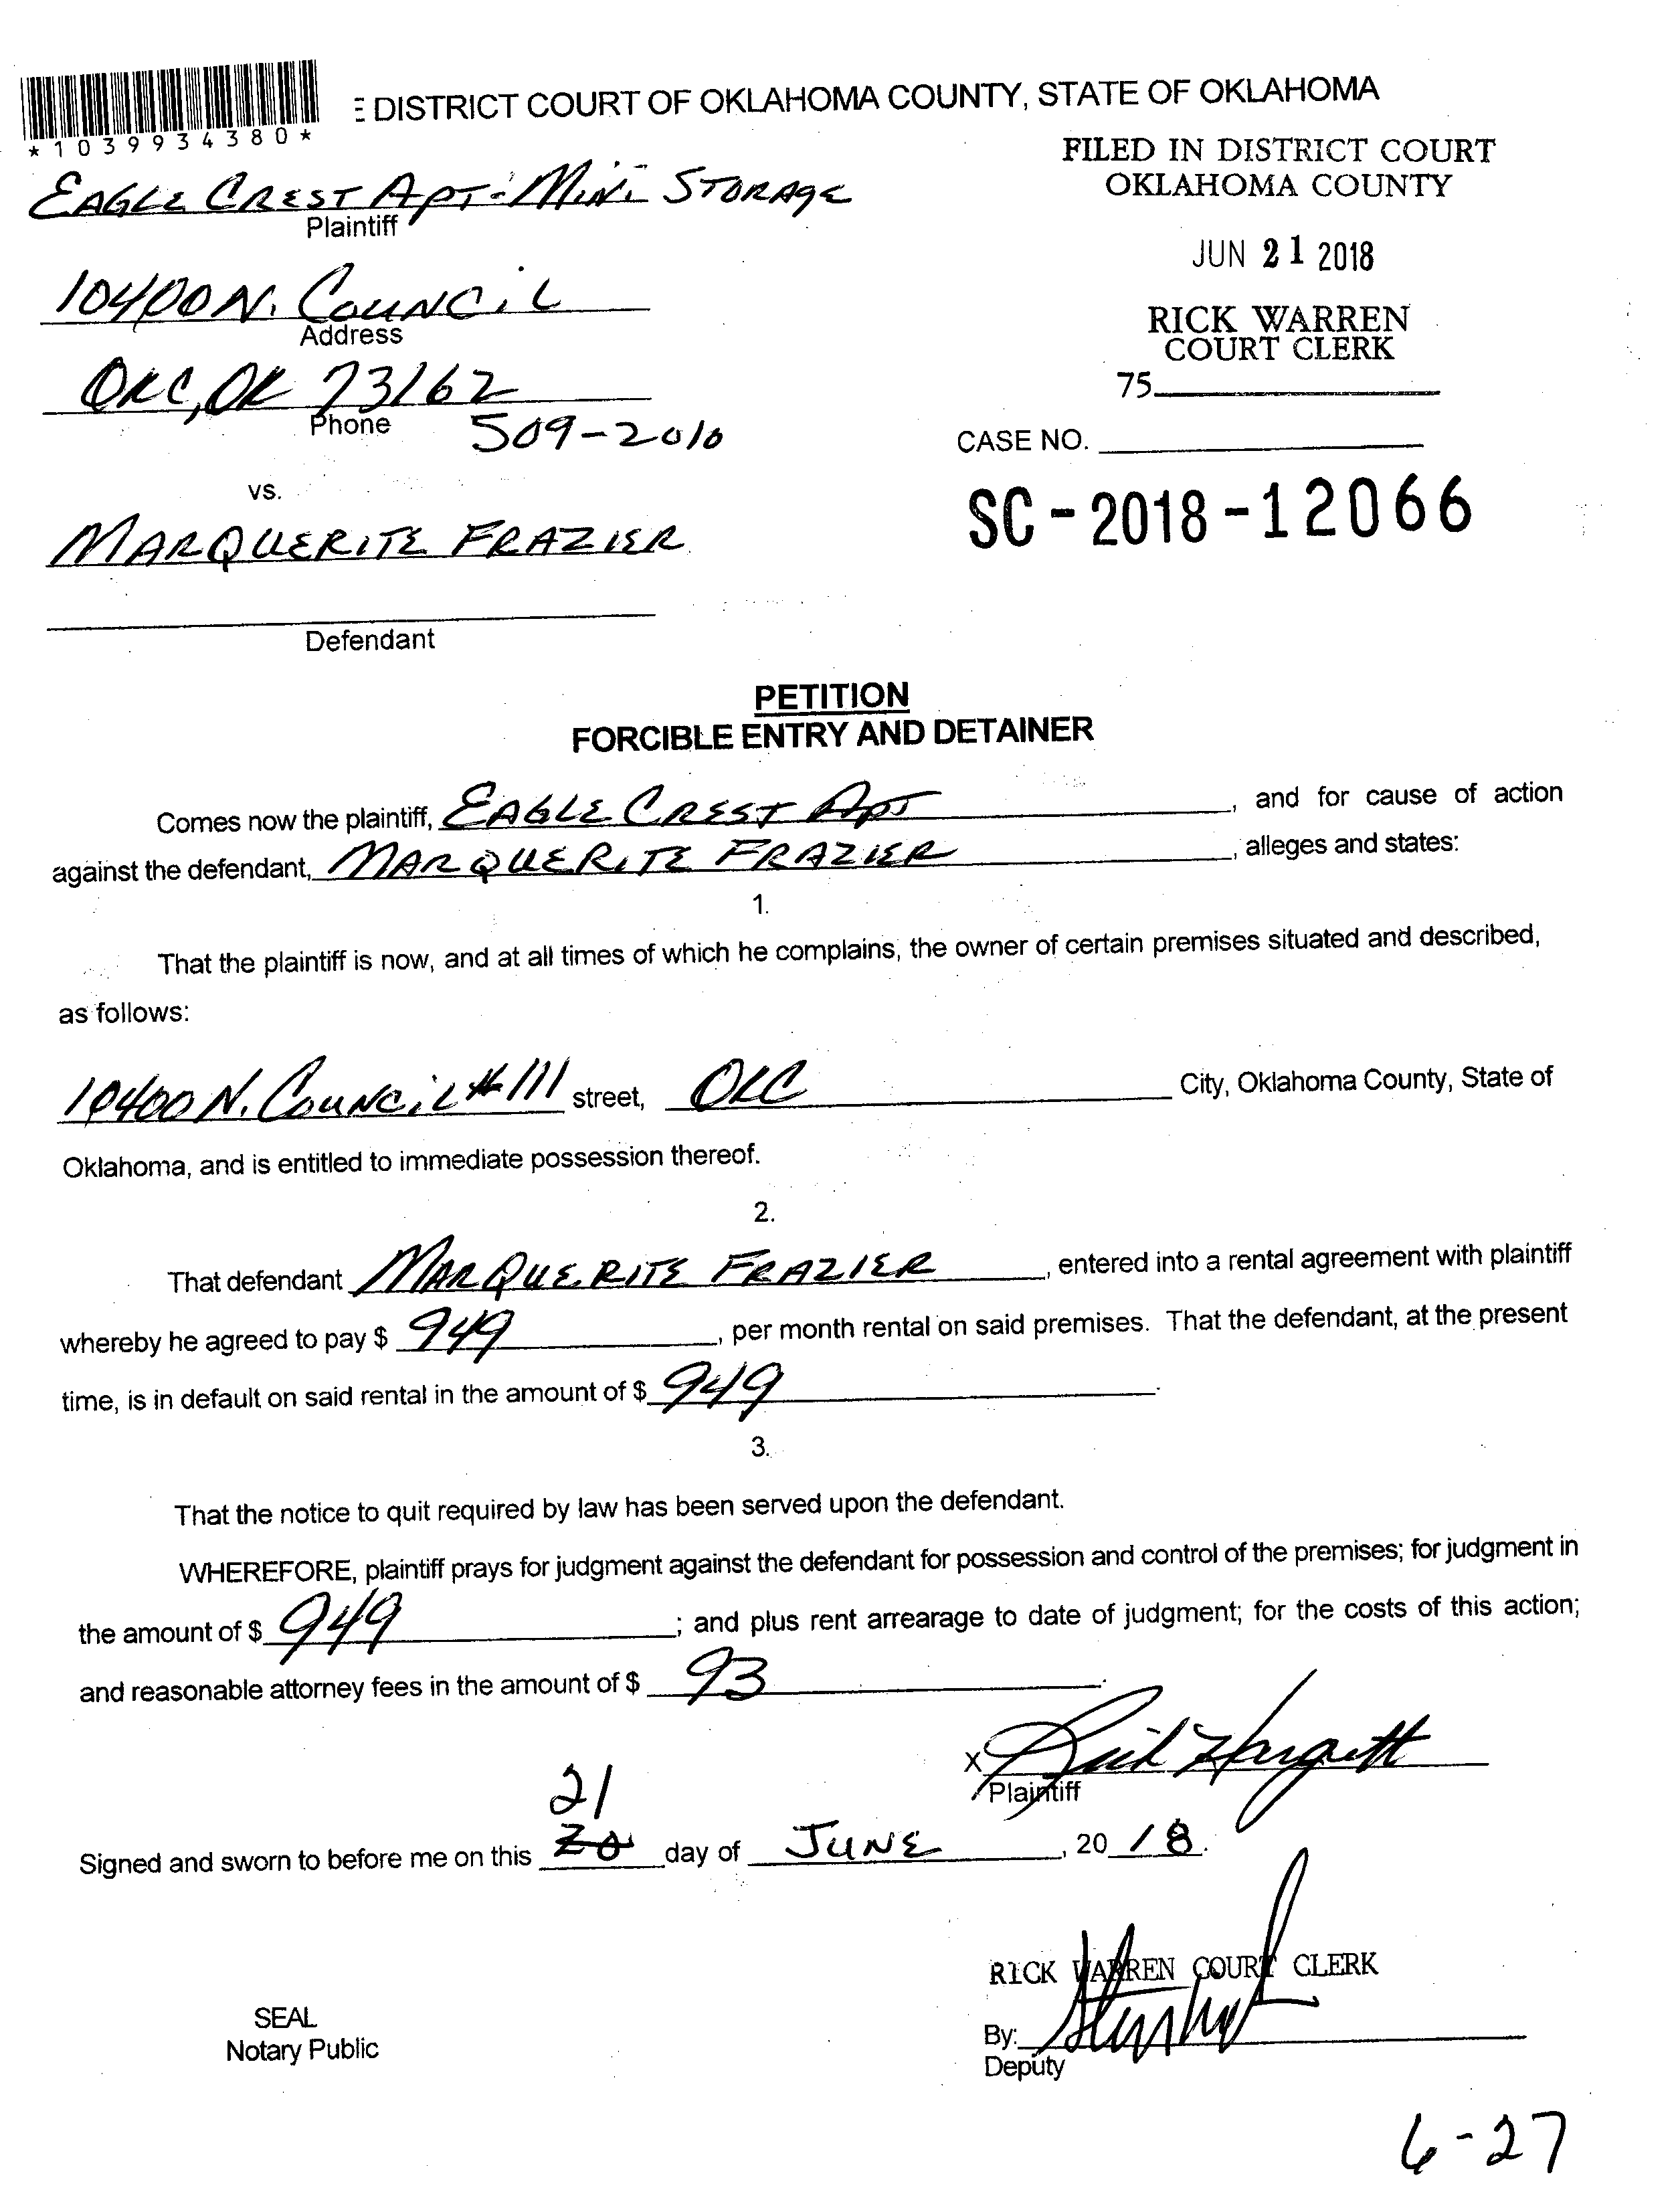 *1039934380*
E DISTRICT COURT OF OKLAHOMA COUNTY, STATE OF OKLAHOMA
FILED IN DISTRICT COURT
OKLAHOMA COUNTY
JUN 21 2018
RICK WARREN
COURT CLERK
75
EAGLE CREST APT-MINI STORAGE
Plaintiff
10400 N. COUNCIL
Address
OKC, OK 73162
Phone 509-2010
CASE NO.
SC-2018-12066
vs.
MARQUERITE FRAZIER
Defendant
PETITION
FORCIBLE ENTRY AND DETAINER
Comes now the plaintiff, EAGLE CREST APT, and for cause of action
against the defendant, MARQUERITE FRAZIER, alleges and states:
1.
That the plaintiff is now, and at all times of which he complains, the owner of certain premises situated and described,
as follows:
10400 N. COUNCIL #111 street, OKC City, Oklahoma County, State of
Oklahoma, and is entitled to immediate possession thereof.
2.
That defendant MARQUERITE FRAZIER, entered into a rental agreement with plaintiff
whereby he agreed to pay $ 949, per month rental on said premises. That the defendant, at the present
time, is in default on said rental in the amount of $ 949.
3.
That the notice to quit required by law has been served upon the defendant.
WHEREFORE, plaintiff prays for judgment against the defendant for possession and control of the premises; for judgment in
the amount of $ 949; and plus rent arrearage to date of judgment; for the costs of this action;
and reasonable attorney fees in the amount of $ 93.
X
Plaintiff
21
Signed and sworn to before me on this 20 day of JUNE, 20 18.
RICK WARREN COURT CLERK
SEAL
Notary Public
By:
Deputy
6-27